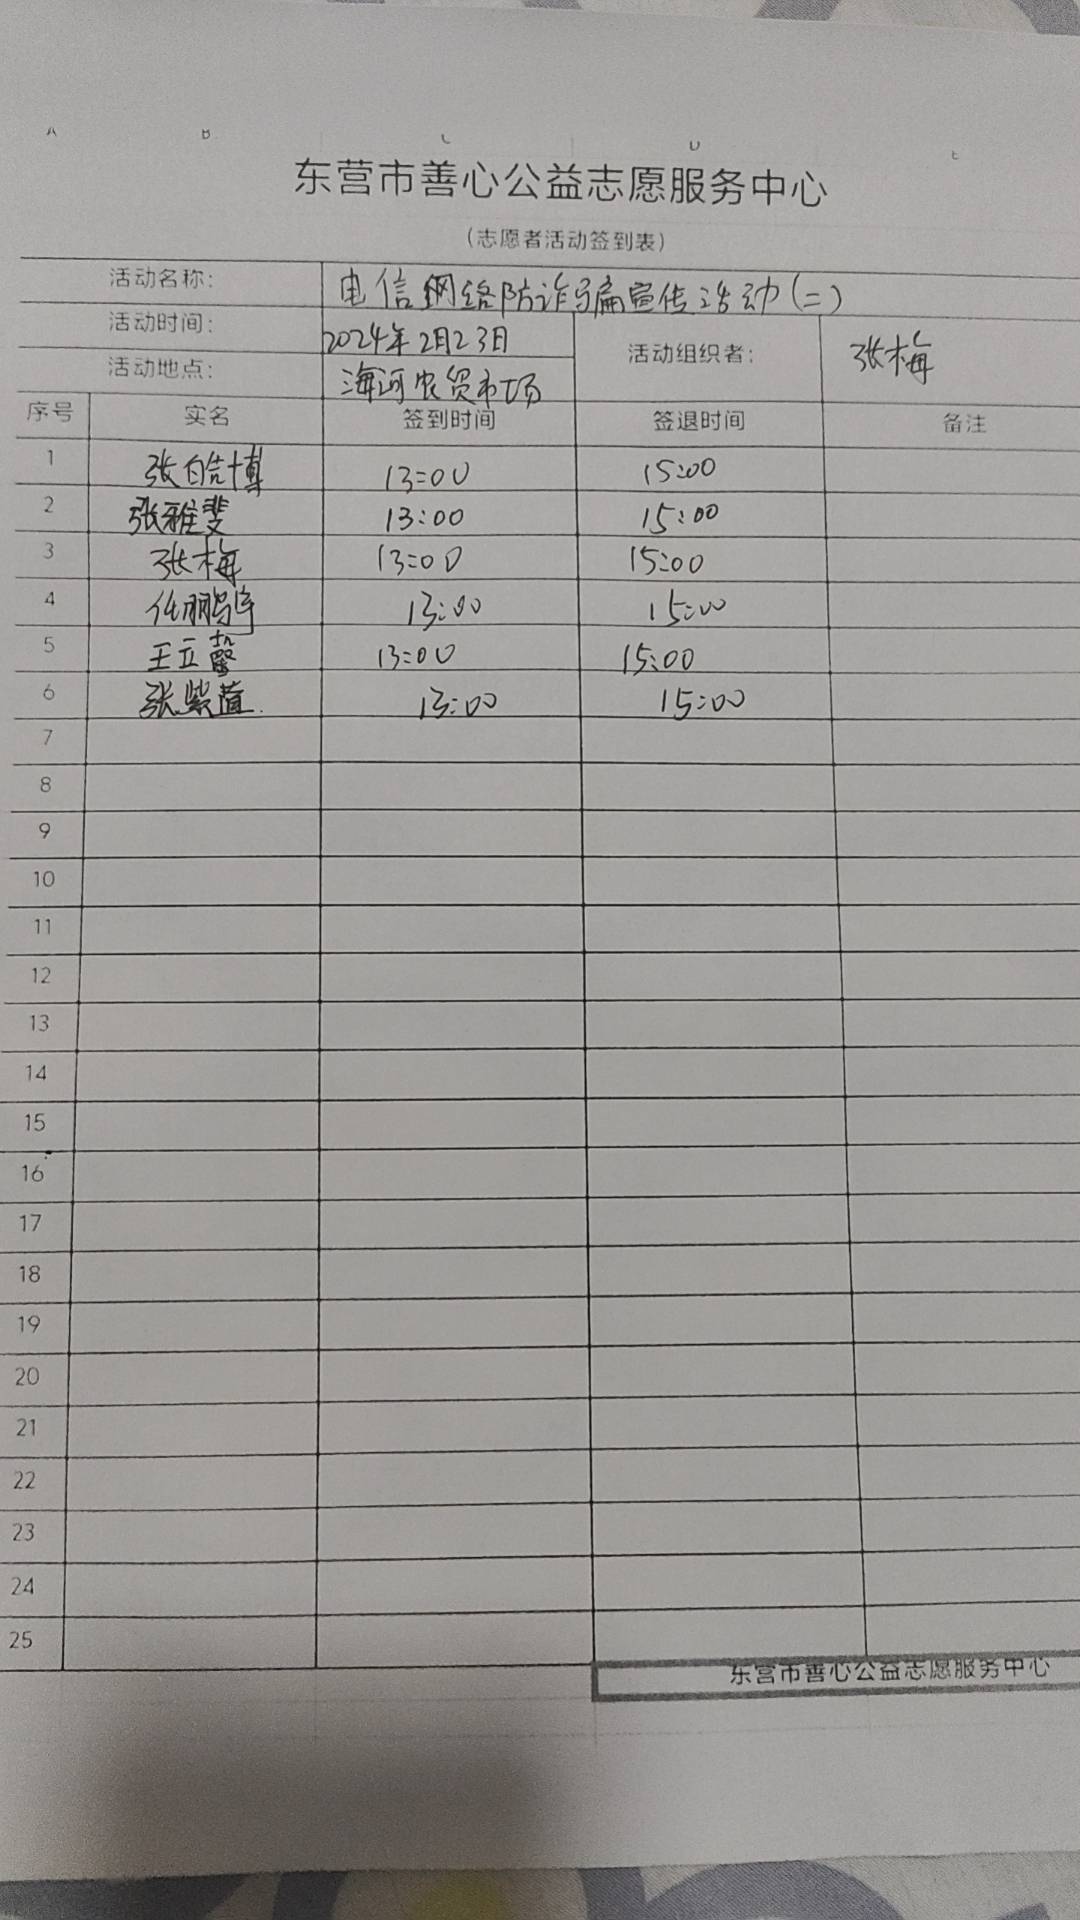 A B C D E
东营市善心公益志愿服务中心
(志愿者活动签到表)
活动名称: 电信网络防诈骗宣传活动(二)
活动时间: 2024年2月23日 活动组织者: 张梅
活动地点: 海河农贸市场
序号 实名 签到时间 签退时间 备注
1 张皓博 13:00 15:00
2 张雅斐 13:00 15:00
3 张梅 13:00 15:00
4 任鹏宇 13:00 15:00
5 王立馨 13:00 15:00
6 张紫萱 13:00 15:00
7
8
9
10
11
12
13
14
15
16
17
18
19
20
21
22
23
24
25
东营市善心公益志愿服务中心